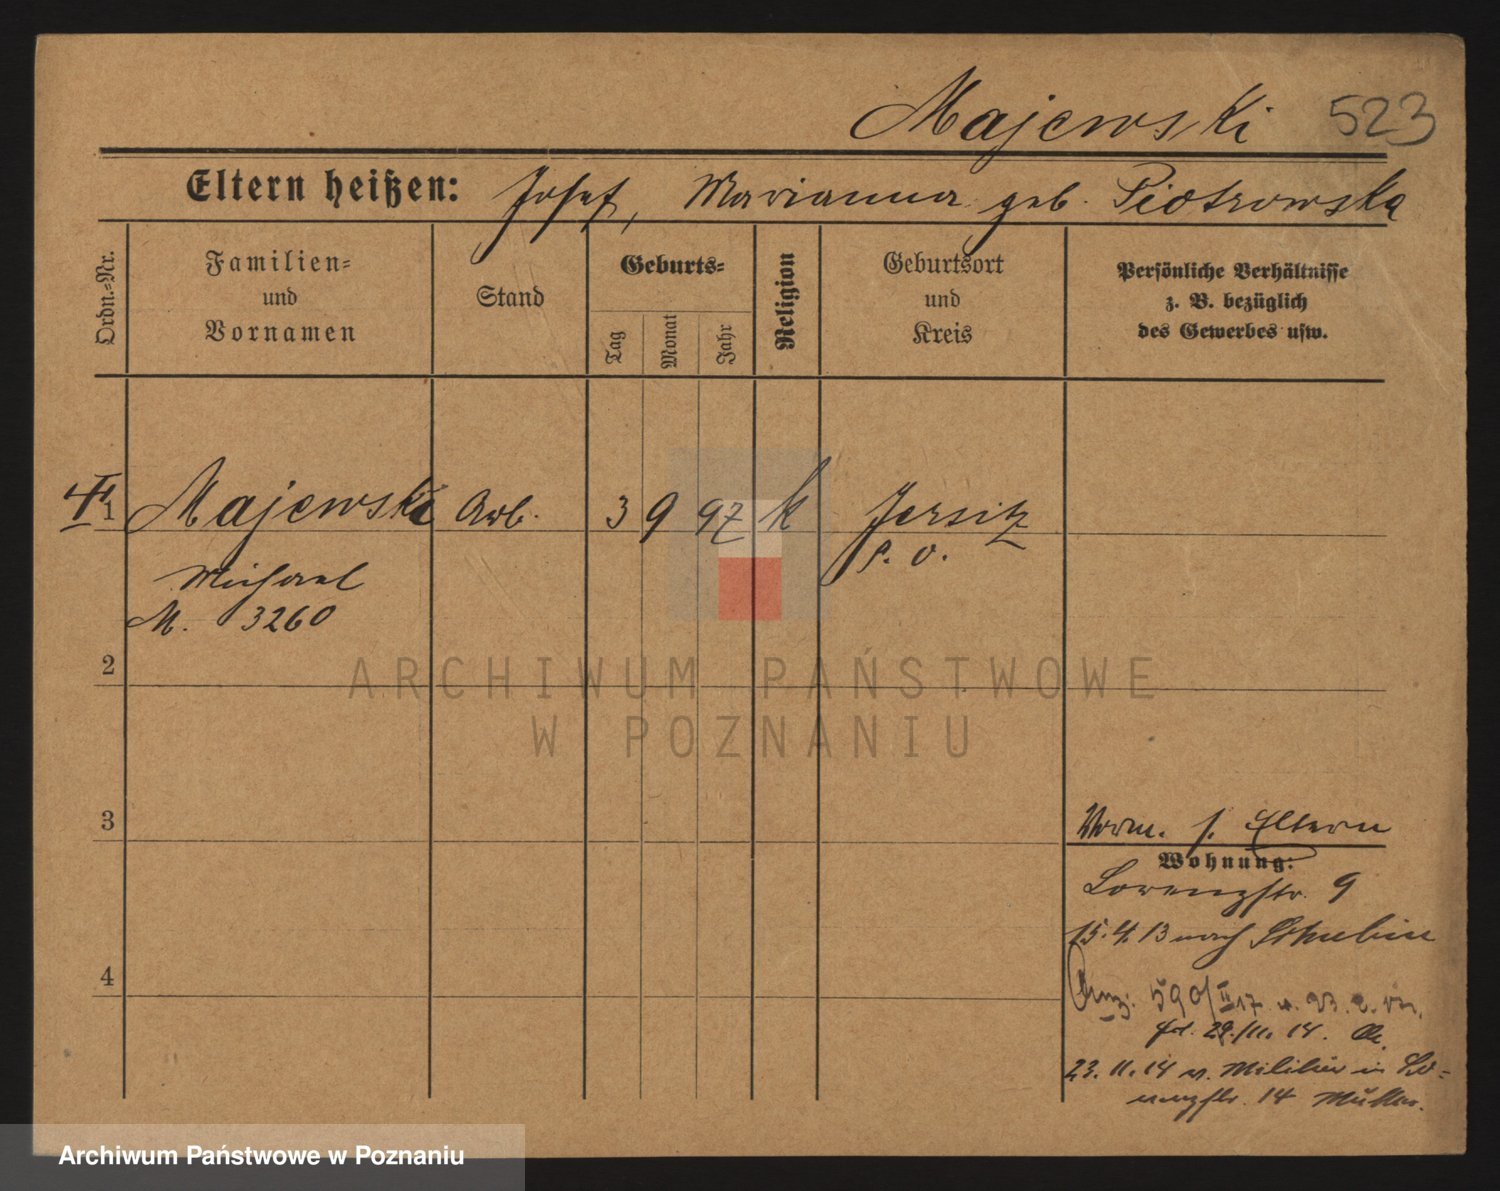 Majewski 523
Eltern heißen: Josef, Marianna geb. Piotrowska
Ordn.=Nr.
Familien=
und
Vornamen
Stand
Geburts=
Tag
Monat
Jahr
Religion
Geburtsort
und
Kreis
Persönliche Verhältnisse
z. B. bezüglich
des Gewerbes usw.
1 Majewski Arb. 3 9 97 k Jersitz
P. O.
Michael
M. 3260
2
ARCHIWUM PAŃSTWOWE
W POZNANIU
3
Worm. s. Eltern
Wohnung:
Lorenzstr. 9
15.4.13 nach Schubin
4
590/II 17
14.
23.11.14 v. Militär in Lo=
renzstr. 14 Mutter.
Archiwum Państwowe w Poznaniu